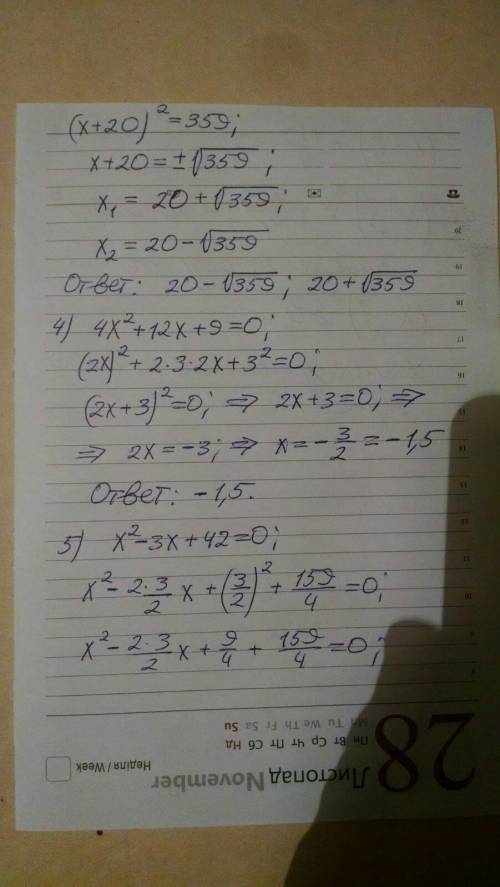 (x+20)² = 359;
x+20 = ±√359;
x₁ = 20 + √359;
x₂ = 20 - √359
Ответ: 20 - √359; 20 + √359
4) 4x² + 12x + 9 = 0;
(2x)² + 2·3·2x + 3² = 0;
(2x+3)² = 0; ⇒ 2x+3 = 0; ⇒
⇒ 2x = -3; ⇒ x = -3/2 = -1,5
Ответ: -1,5.
5) x² - 3x + 42 = 0;
x² - 2·3/2 x + (3/2)² + 159/4 = 0;
x² - 2·3/2 x + 9/4 + 159/4 = 0;
28
Листопад November
Неділя / Week
Пн Вт Ср Чт Пт Сб Нд
Mn Tu We Th Fr Sa Su